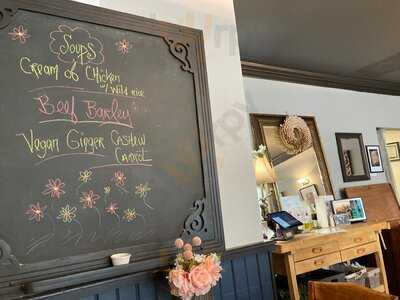 Soups
Cream of Chicken
w/Wild rice
Beef Barley
Vegan Ginger Cashew
Carrot